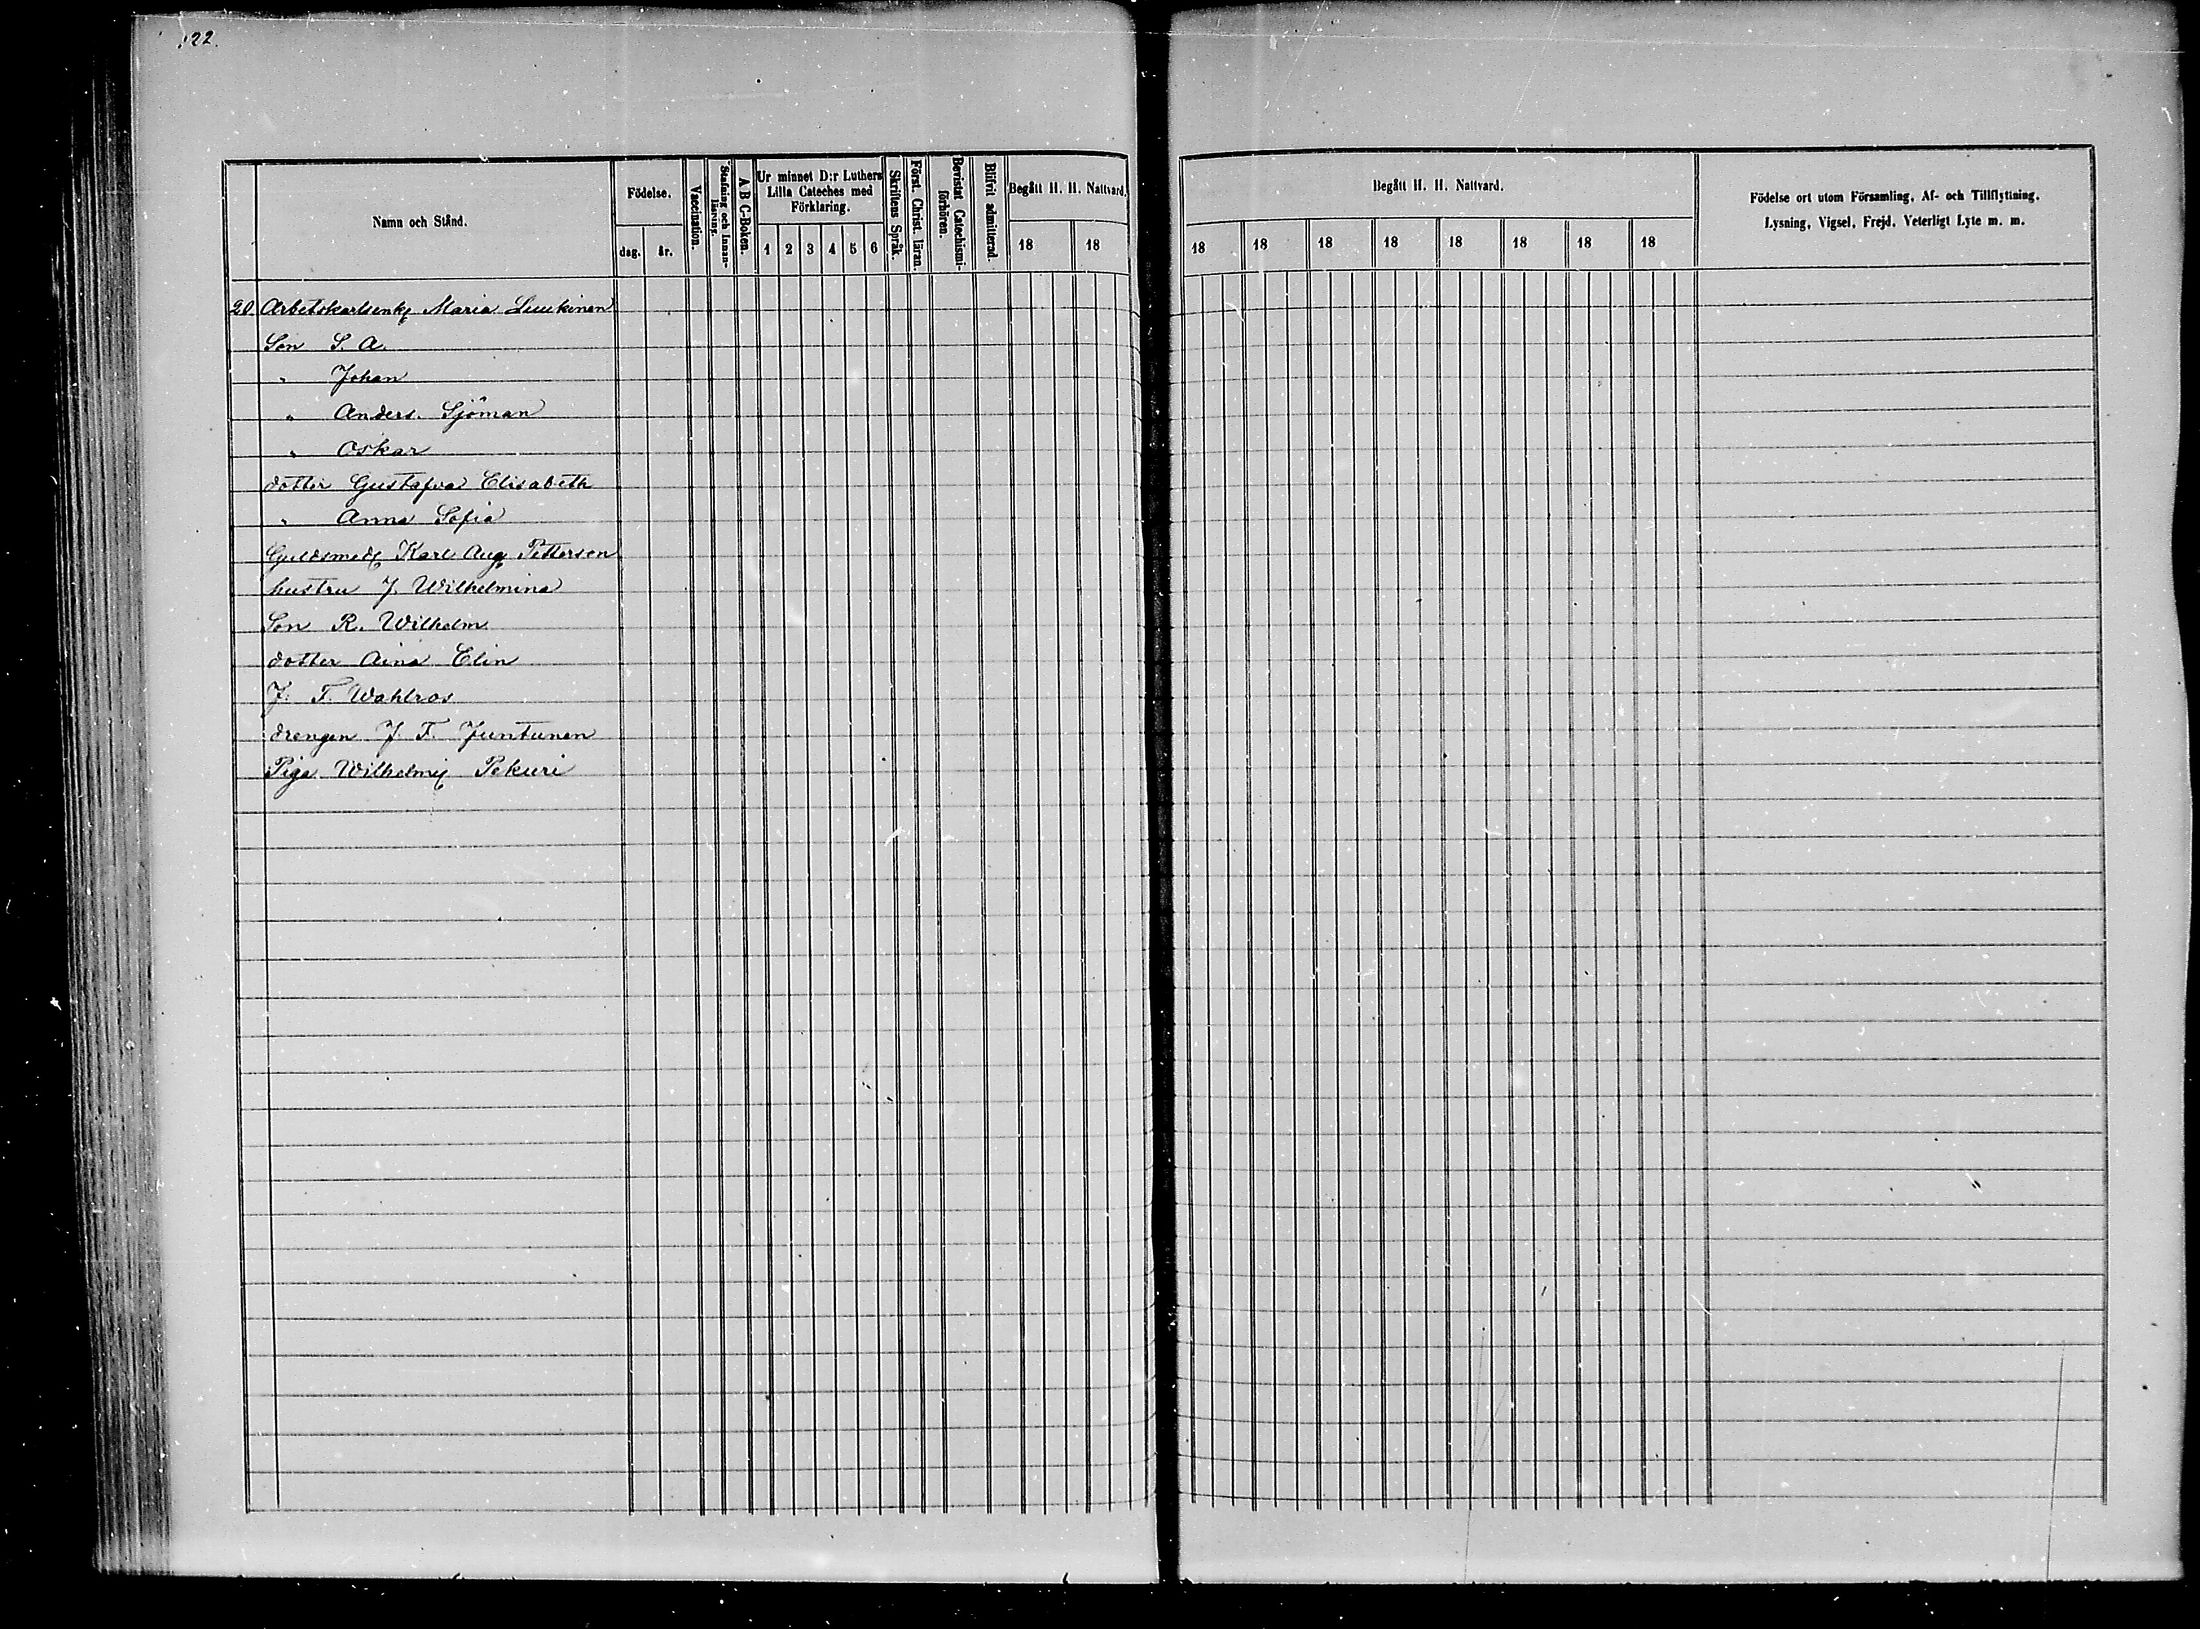 122.
Namn och Stånd.
Födelse.
dag.
år.
Vaccination.
Stafning och Innanläsning.
A B C-Boken.
Ur minnet D:r Luthers
Lilla Cateches med
Förklaring.
1 2 3 4 5 6
Skriftens Språk.
Först. Christ. läran.
Bevistat Catechismi-
förhören.
Blifvit admitterad.
Begått H. H. Nattvard.
18 18
Begått H. H. Nattvard.
18 18 18 18 18 18 18 18
Födelse ort utom Församling, Af- och Tillflyttning,
Lysning, Vigsel, Frejd, Veterligt Lyte m. m.
20 Arbetskarlsenk Maria Luukinen
Son S. A.
" Johan
" Anders. Sjöman
" Oskar
dotter Gustafva Elisabeth
" Anna Sofia
Guldsmed Karl Aug Pettersen
hustru J. Wilhelmina
Son R. Wilhelm
dotter Aina Elin
J. F. Wahlros
drengen J. F. Juntunen
Piga Wilhelmi Pekuri